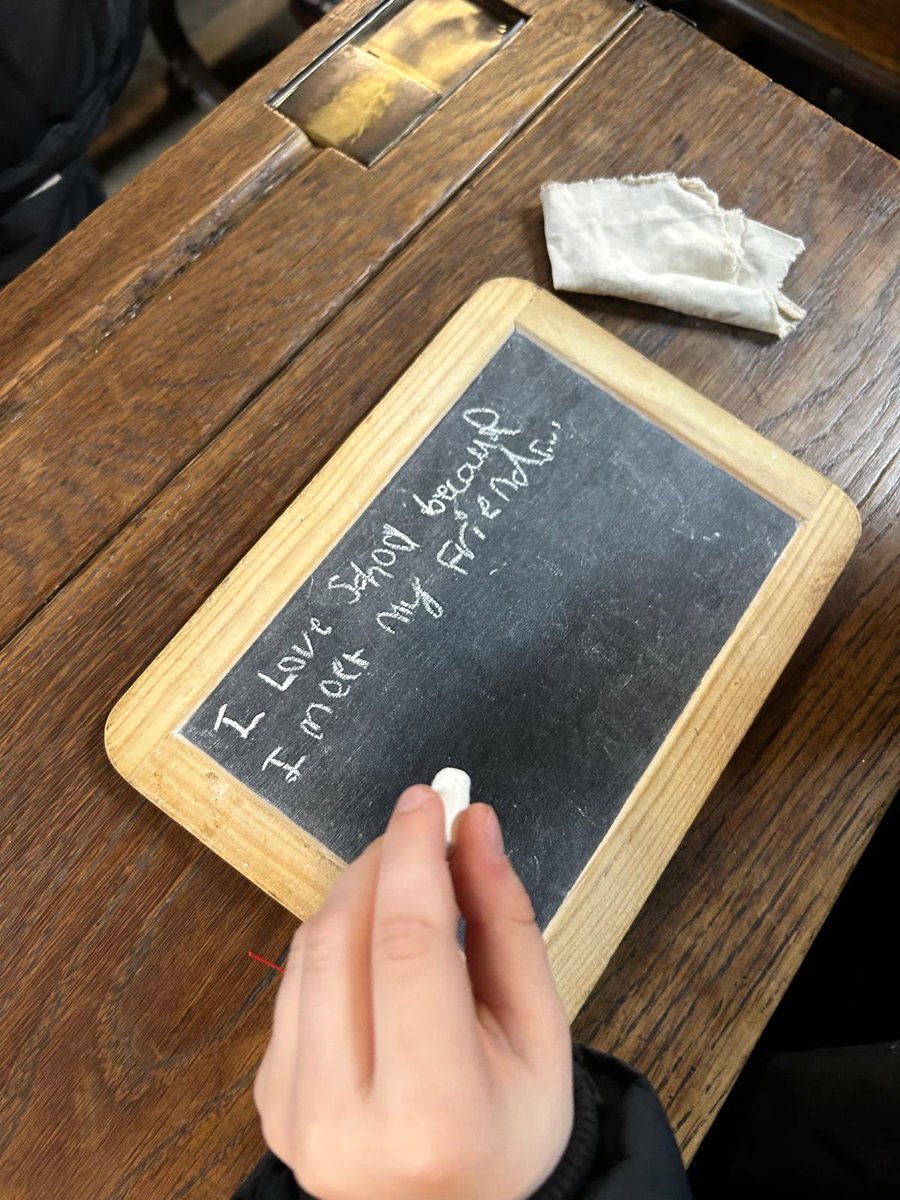 I Love School because
I meet my Friends...